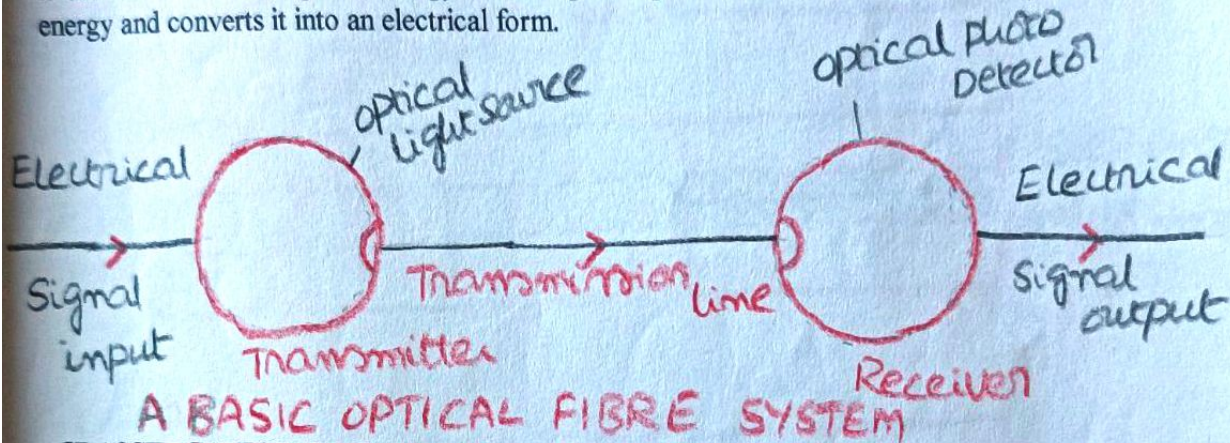 energy and converts it into an electrical form.
optical
light source
optical photo
Detector
Electrical
Signal
input
Transmitter
Transmission line
Receiver
Electrical
Signal
output
A BASIC OPTICAL FIBRE SYSTEM